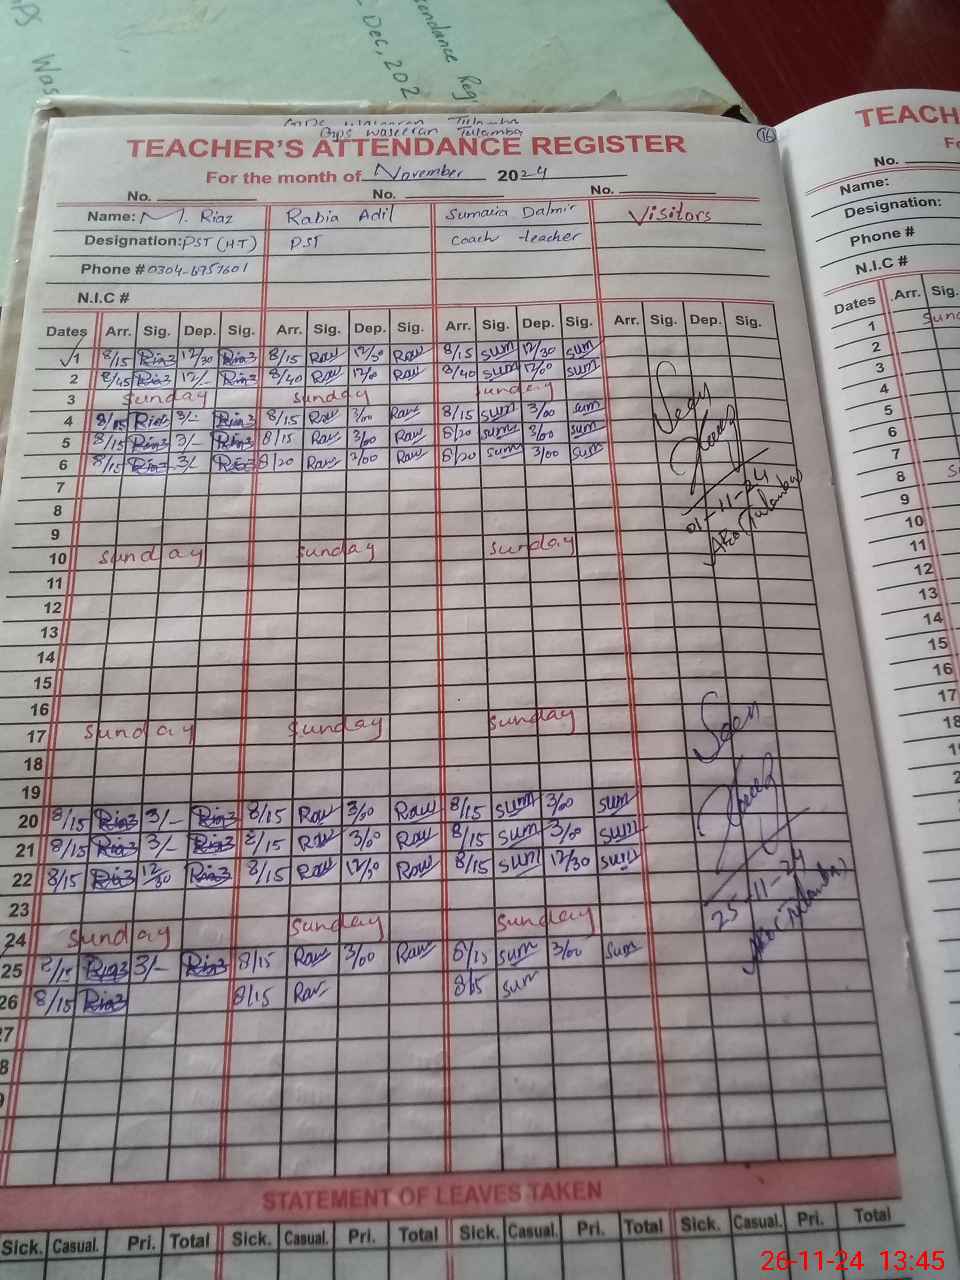 endance Reg
Dec, 202
Was
Gps Waseeran Tulamba
16
TEACHER'S ATTENDANCE REGISTER
For the month of November 2024
No. No. No.
Name: M. Riaz Rabia Adil Sumaira Dalmir Visitors
Designation: PST (HT) PST Coach teacher
Phone # 0304-6757601
N.I.C #
Dates Arr. Sig. Dep. Sig. Arr. Sig. Dep. Sig. Arr. Sig. Dep. Sig. Arr. Sig. Dep. Sig.
1 8/15 Riaz 12/30 Riaz 8/15 Raw 12/30 Raw 8/15 Sum 12/30 Sum
2 8/45 Riaz 12/- Riaz 8/40 Raw 12/00 Raw 8/40 Sum 12/00 Sum
3 Sunday Sunday Sunday
4 8/15 Riaz 3/- Riaz 8/15 Raw 3/00 Raw 8/15 Sum 3/00 Sum
5 8/15 Riaz 3/- Riaz 8/15 Raw 3/00 Raw 8/20 Sum 3/00 Sum
6 8/15 Riaz 3/- Riaz 8/20 Raw 3/00 Raw 8/20 Sum 3/00 Sum
Seen
01-11-24
AEO (Tulamba)
7
8
9
10 Sunday Sunday Sunday
11
12
13
14
15
16
17 Sunday Sunday Sunday
18
19
20 8/15 Riaz 3/- Riaz 8/15 Raw 3/00 Raw 8/15 Sum 3/00 Sum
21 8/15 Riaz 3/- Riaz 8/15 Raw 3/00 Raw 8/15 Sum 3/00 Sum
22 8/15 Riaz 12/30 Riaz 8/15 Raw 12/30 Raw 8/15 Sum 12/30 Sum
Seen
25-11-24
AEO (Tulamba)
23
24 Sunday Sunday Sunday
25 8/15 Riaz 3/- Riaz 8/15 Raw 3/00 Raw 8/15 Sum 3/00 Sum
26 8/15 Riaz 8/15 Raw 8/15 Sum
27
8
9
STATEMENT OF LEAVES TAKEN
Sick. Casual. Pri. Total Sick. Casual. Pri. Total Sick. Casual. Pri. Total Sick. Casual. Pri. Total
TEACH
No.
Name:
Designation:
Phone #
N.I.C #
Dates Arr. Sig.
1 Sund
2
3
4
5
6
7
8
9
10
11
12
13
14
15
16
17
18
26-11-24 13:45